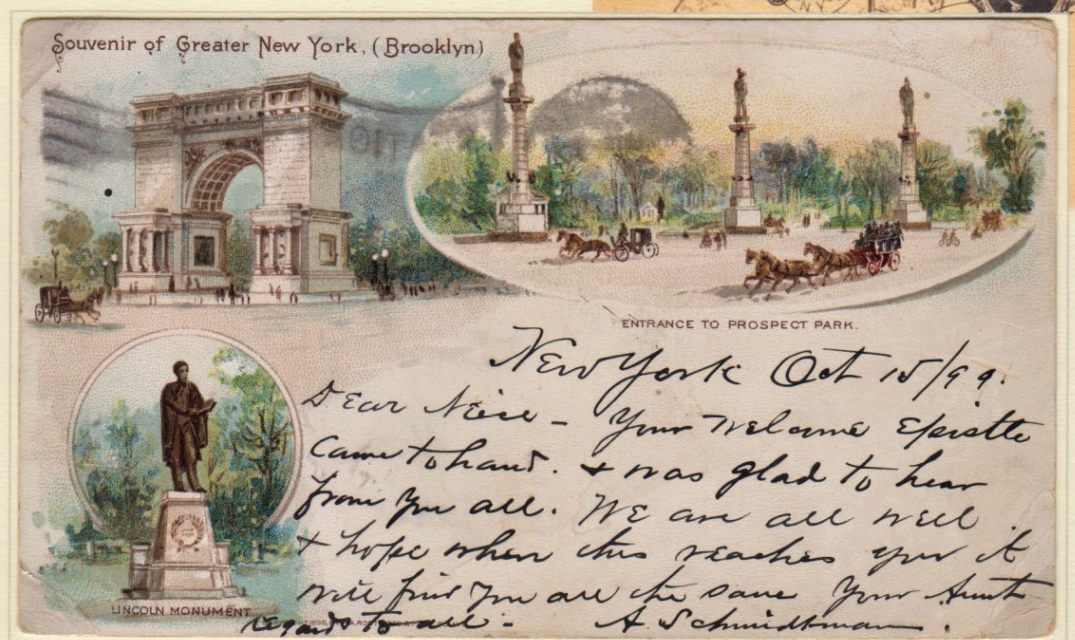 Souvenir of Greater New York, (Brooklyn)
ENTRANCE TO PROSPECT PARK.
New York Oct 15/99.
Dear Neice - Your Welcome Epistle
Came to hand. & was glad to hear
from you all. We are all well
& hope when this reaches you it
will find you all the same Your Aunt
regards to all - A Schmidtman.
LINCOLN MONUMENT